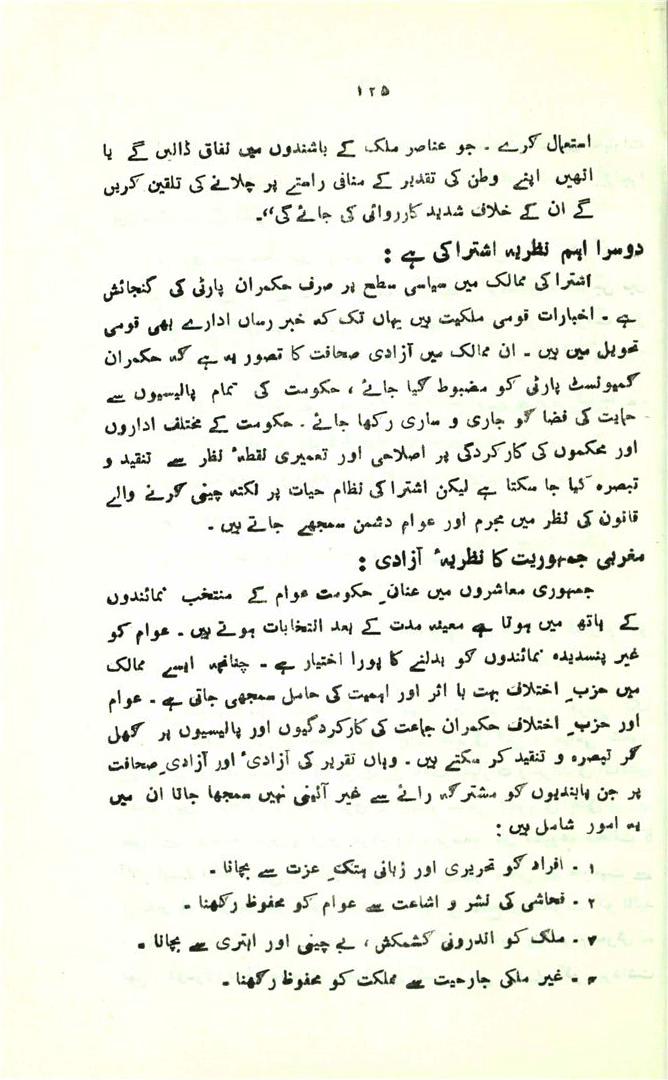 ۱۲۵
استعمال کرے ۔ جو عناصر ملک کے باشندوں میں نفاق ڈالیں گے یا
انھیں اپنے وطن کی تقدیر کے منافی راستے پر چلانے کی تلقین کریں
گے ان کے خلاف شدید کارروائی کی جائے گی“۔
دوسرا اہم نظریہ اشتراکی ہے :
اشتراکی ممالک میں سیاسی سطح پر صرف حکمران پارٹی کی گنجائش
ہے ۔ اخبارات قومی ملکیت ہیں یہاں تک کہ خبر رساں ادارے بھی قومی
تحویل میں ہیں ۔ ان ممالک میں آزادی صحافت کا تصور یہ ہے کہ حکمران
کمیونسٹ پارٹی کو مضبوط کیا جائے ، حکومت کی تمام پالیسیوں سے
حمایت کی فضا کو جاری و ساری رکھا جائے ۔ حکومت کے مختلف اداروں
اور محکموں کی کارکردگی پر اصلاحی اور تعمیری نقطۂ نظر سے تنقید و
تبصرہ کیا جا سکتا ہے لیکن اشتراکی نظام حیات پر نکتہ چینی کرنے والے
قانون کی نظر میں مجرم اور عوام دشمن سمجھے جاتے ہیں ۔
مغربی جمہوریت کا نظریۂ آزادی :
جمہوری معاشروں میں عنانِ حکومت عوام کے منتخب نمائندوں
کے ہاتھ میں ہوتا ہے معینہ مدت کے بعد انتخابات ہوتے ہیں ۔ عوام کو
غیر پسندیدہ نمائندوں کو بدلنے کا پورا اختیار ہے ۔ چنانچہ ایسے ممالک
میں حزبِ اختلاف بہت با اثر اور اہمیت کی حامل سمجھی جاتی ہے ۔ عوام
اور حزبِ اختلاف حکمران جماعت کی کارکردگیوں اور پالیسیوں پر کھل
کر تبصرہ و تنقید کر سکتے ہیں ۔ وہاں تقریر کی آزادیٔ اور آزادیِ صحافت
پر جن پابندیوں کو مشترکہ رائے سے غیر آئینی نہیں سمجھا جاتا ان میں
یہ امور شامل ہیں :
۱ ۔ افراد کو تحریری اور زبانی ہتکِ عزت سے بچانا ۔
۲ ۔ فحاشی کی نشر و اشاعت سے عوام کو محفوظ رکھنا ۔
۳ ۔ ملک کو اندرونی کشمکش ، بے چینی اور ابتری سے بچانا ۔
۴ ۔ غیر ملکی جارحیت سے مملکت کو محفوظ رکھنا ۔